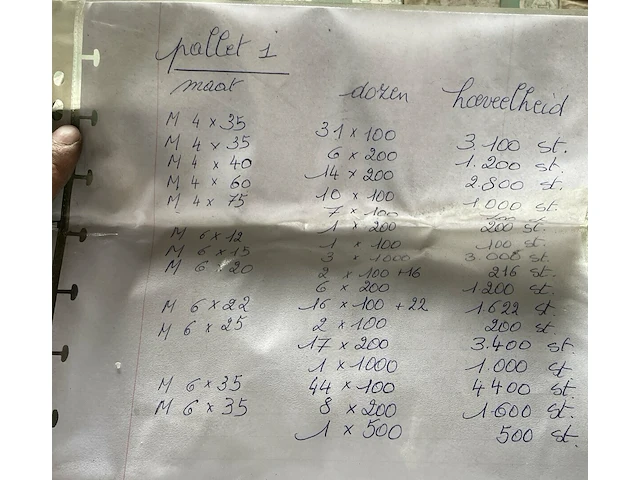 pallet 1
maat dozen hoeveelheid
M 4 x 35 31 x 100 3.100 st.
M 4 x 35 6 x 200 1.200 st.
M 4 x 40 14 x 200 2.800 st.
M 4 x 60 10 x 100 1.000 st.
M 4 x 75 7 x 100 st.
1 x 200 200 st.
M 6 x 12 1 x 100 100 st.
M 6 x 15 3 x 1000 3.000 st.
M 6 x 20 2 x 100 +16 216 st.
6 x 200 1.200 st.
M 6 x 22 16 x 100 + 22 1.622 st.
M 6 x 25 2 x 100 200 st.
17 x 200 3.400 st.
1 x 1000 1.000 st
M 6 x 35 44 x 100 4.400 st.
M 6 x 35 8 x 200 1.600 st.
1 x 500 500 st.